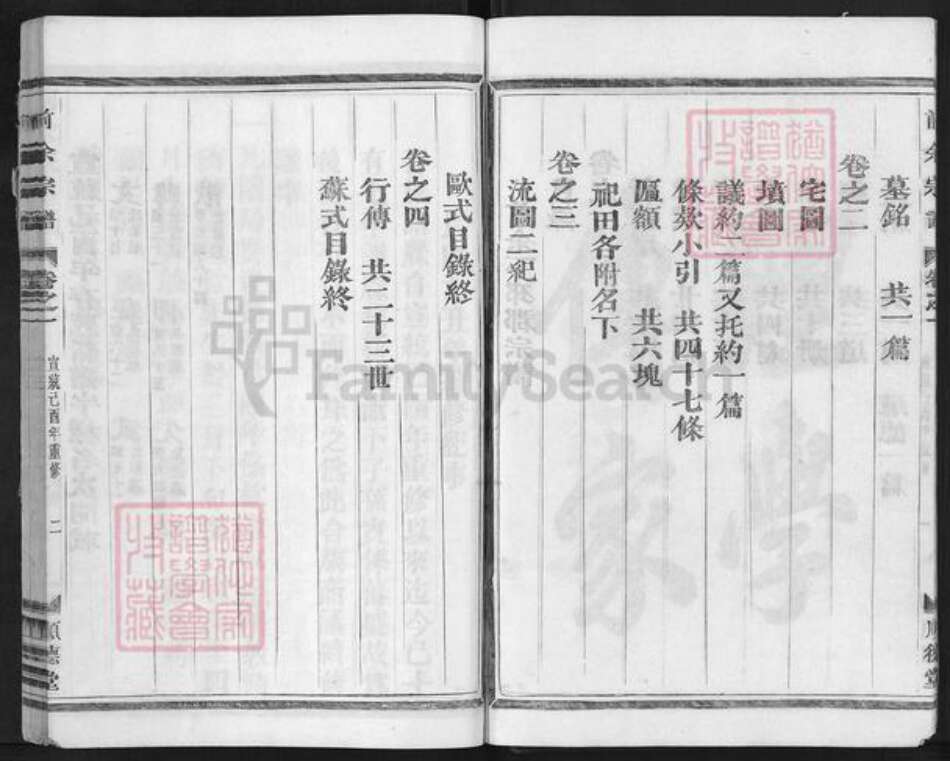 墓銘 共一篇
卷之二
宅圖
墳圖
議約二篇又托約一篇
條欵小引 共四十七條
匾額 共六塊
祀田各附名下
卷之三
流圖二紀
歐式目錄終
卷之四
行傳 共二十三世
蘇式目錄終
前余宗譜 卷之一 宣統己酉年重修 二 順德堂
FamilySearch